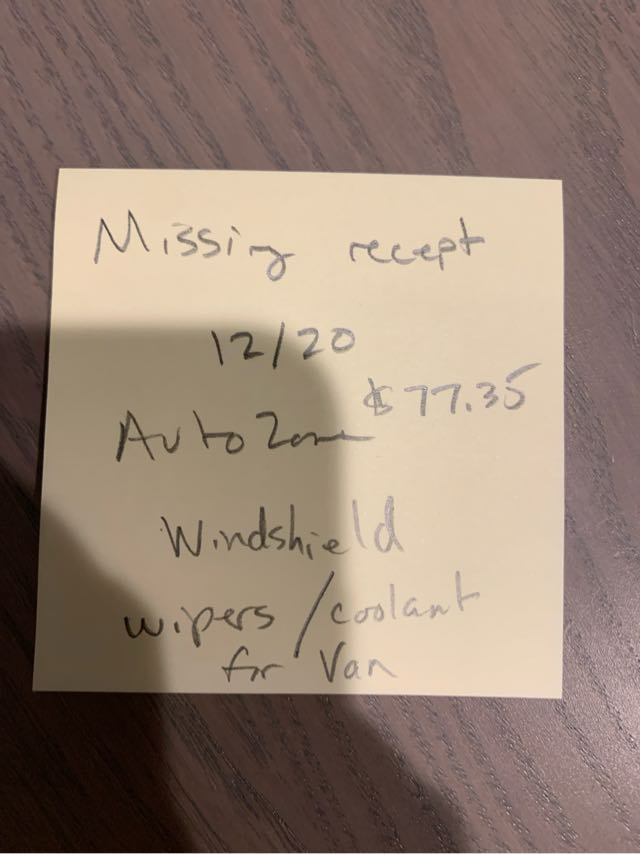 Missing recept
12/20
$77.35
AutoZone
Windshield
wipers/coolant
for Van